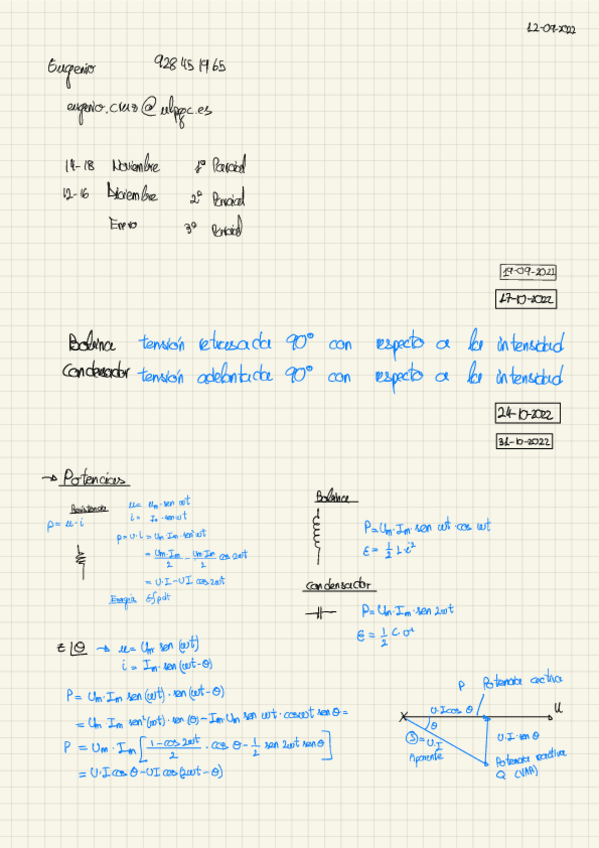 12-09-2022
Eugenio 928 45 19 65
eugenio.cruz@ulpgc.es
14-18 Noviembre 1º Parcial
12-16 Diciembre 2º Parcial
Enero 3º Parcial
19-09-2021
17-10-2022
Bobina tensión retrasada 90° con respecto a la intensidad
Condensador tensión adelantada 90° con respecto a la intensidad
24-10-2022
31-10-2022
→ Potencias
Resistencia
p = u·i
u = Um·sen ωt
i = Im·sen ωt
p = u·i = Um·Im·sen²ωt
= Um·Im/2 - Um·Im/2 cos 2ωt
= U·I - UI cos 2ωt
Energía ε∫pdt
Bobina
P = Um·Im·sen ωt·cos ωt
ε = 1/2 L i²
Condensador
P = Um·Im·sen 2ωt
ε = 1/2 C·
z|θ → u = Um sen (ωt)
i = Im·sen(ωt-θ)
P = Um·Im sen(ωt)·sen(ωt-θ)
= Um Im sen²(ωt)·sen(θ) - Im Um sen ωt·cosωt sen θ =
P = Um·Im [1-cos 2ωt/2 · cos θ - 1/2 sen 2ωt sen θ]
= U·I cos θ - UI cos(2ωt-θ)
P Potencia activa
U·I cos θ
U
θ
S = U·I
Aparente
U·I·sen θ
Potencia reactiva
Q (VAR)